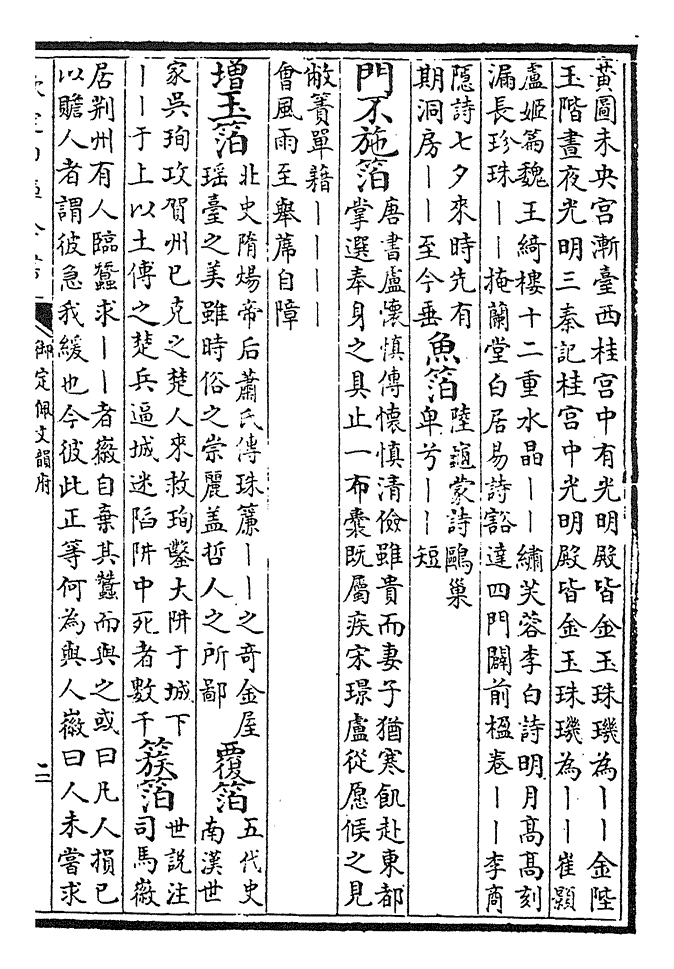 黃圖未央宮漸臺西桂宮中有光明殿皆金玉珠璣為丨丨金陛
玉階晝夜光明三秦記桂宮中光明殿皆金玉珠璣為丨丨崔顥
盧姬篇魏王綺樓十二重水晶丨丨繡芙蓉李白詩明月髙髙刻
漏長珍珠丨丨掩蘭堂白居易詩豁達四門闢前楹卷丨丨李商
隱詩七夕來時先有
期洞房丨丨至今垂
魚箔
陸龜蒙詩鷗巢
卑兮丨丨短
門不施箔
唐書盧懷慎傳懷慎清儉雖貴而妻子猶寒飢赴東都
掌選奉身之具止一布囊既屬疾宋璟盧從愿候之見
敝簀單藉丨丨丨丨
會風雨至舉蓆自障
增玉箔
北史隋煬帝后蕭氏傳珠簾丨丨之奇金屋
瑶臺之美雖時俗之崇麗盖哲人之所鄙
覆箔
五代史
南漢世
家吳珣攻賀州已克之楚人來救珣鑿大阱于城下
丨丨于上以土傅之楚兵逼城迷陷阱中死者數千
簇箔
世說注
司馬徽
居荆州有人臨蠶求丨丨者徽自棄其蠶而與之或曰凡人損已
以贍人者謂彼急我緩也今彼此正等何為與人徽曰人未嘗求
御定佩文韻府
二